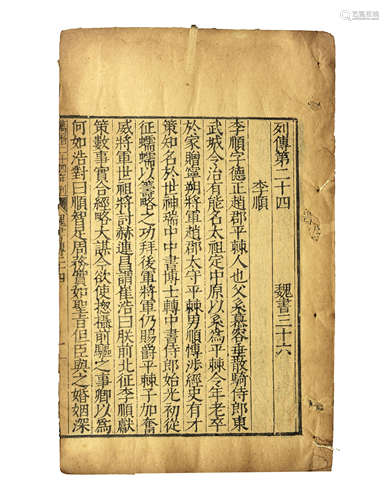 列傳第二十四　魏書三十六
李順
李順字德正趙郡平棘人也父系慕容垂散騎侍郎東
武城令治有能名太祖定中原以系為平棘令年老卒
於家贈寧朔將軍趙郡太守平棘男順博涉經史有才
策知名於世神瑞中中書博士轉中書侍郎始光初從
征蠕蠕以籌略之功拜後軍將軍仍賜爵平棘子加奮
威將軍世祖將討赫連昌謂崔浩曰朕前北征李順獻
策數事實合經略大謀今欲使惣攝前驅之事卿以為
何如浩對曰順智足周務實如聖旨但臣與之婚姻深